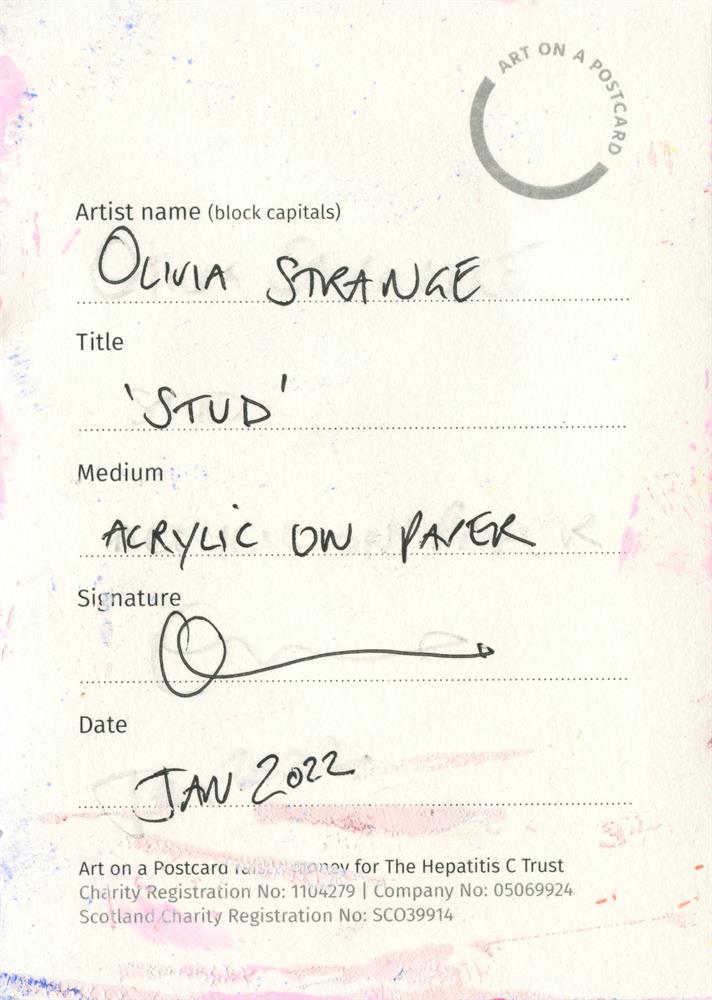 ART ON A POSTCARD
Artist name (block capitals)
OLIVIA STRANGE
Title
'STUD'
Medium
ACRYLIC ON PAPER
Signature
Date
JAN 2022
Art on a Postcard raises money for The Hepatitis C Trust
Charity Registration No: 1104279 | Company No: 05069924
Scotland Charity Registration No: SCO39914